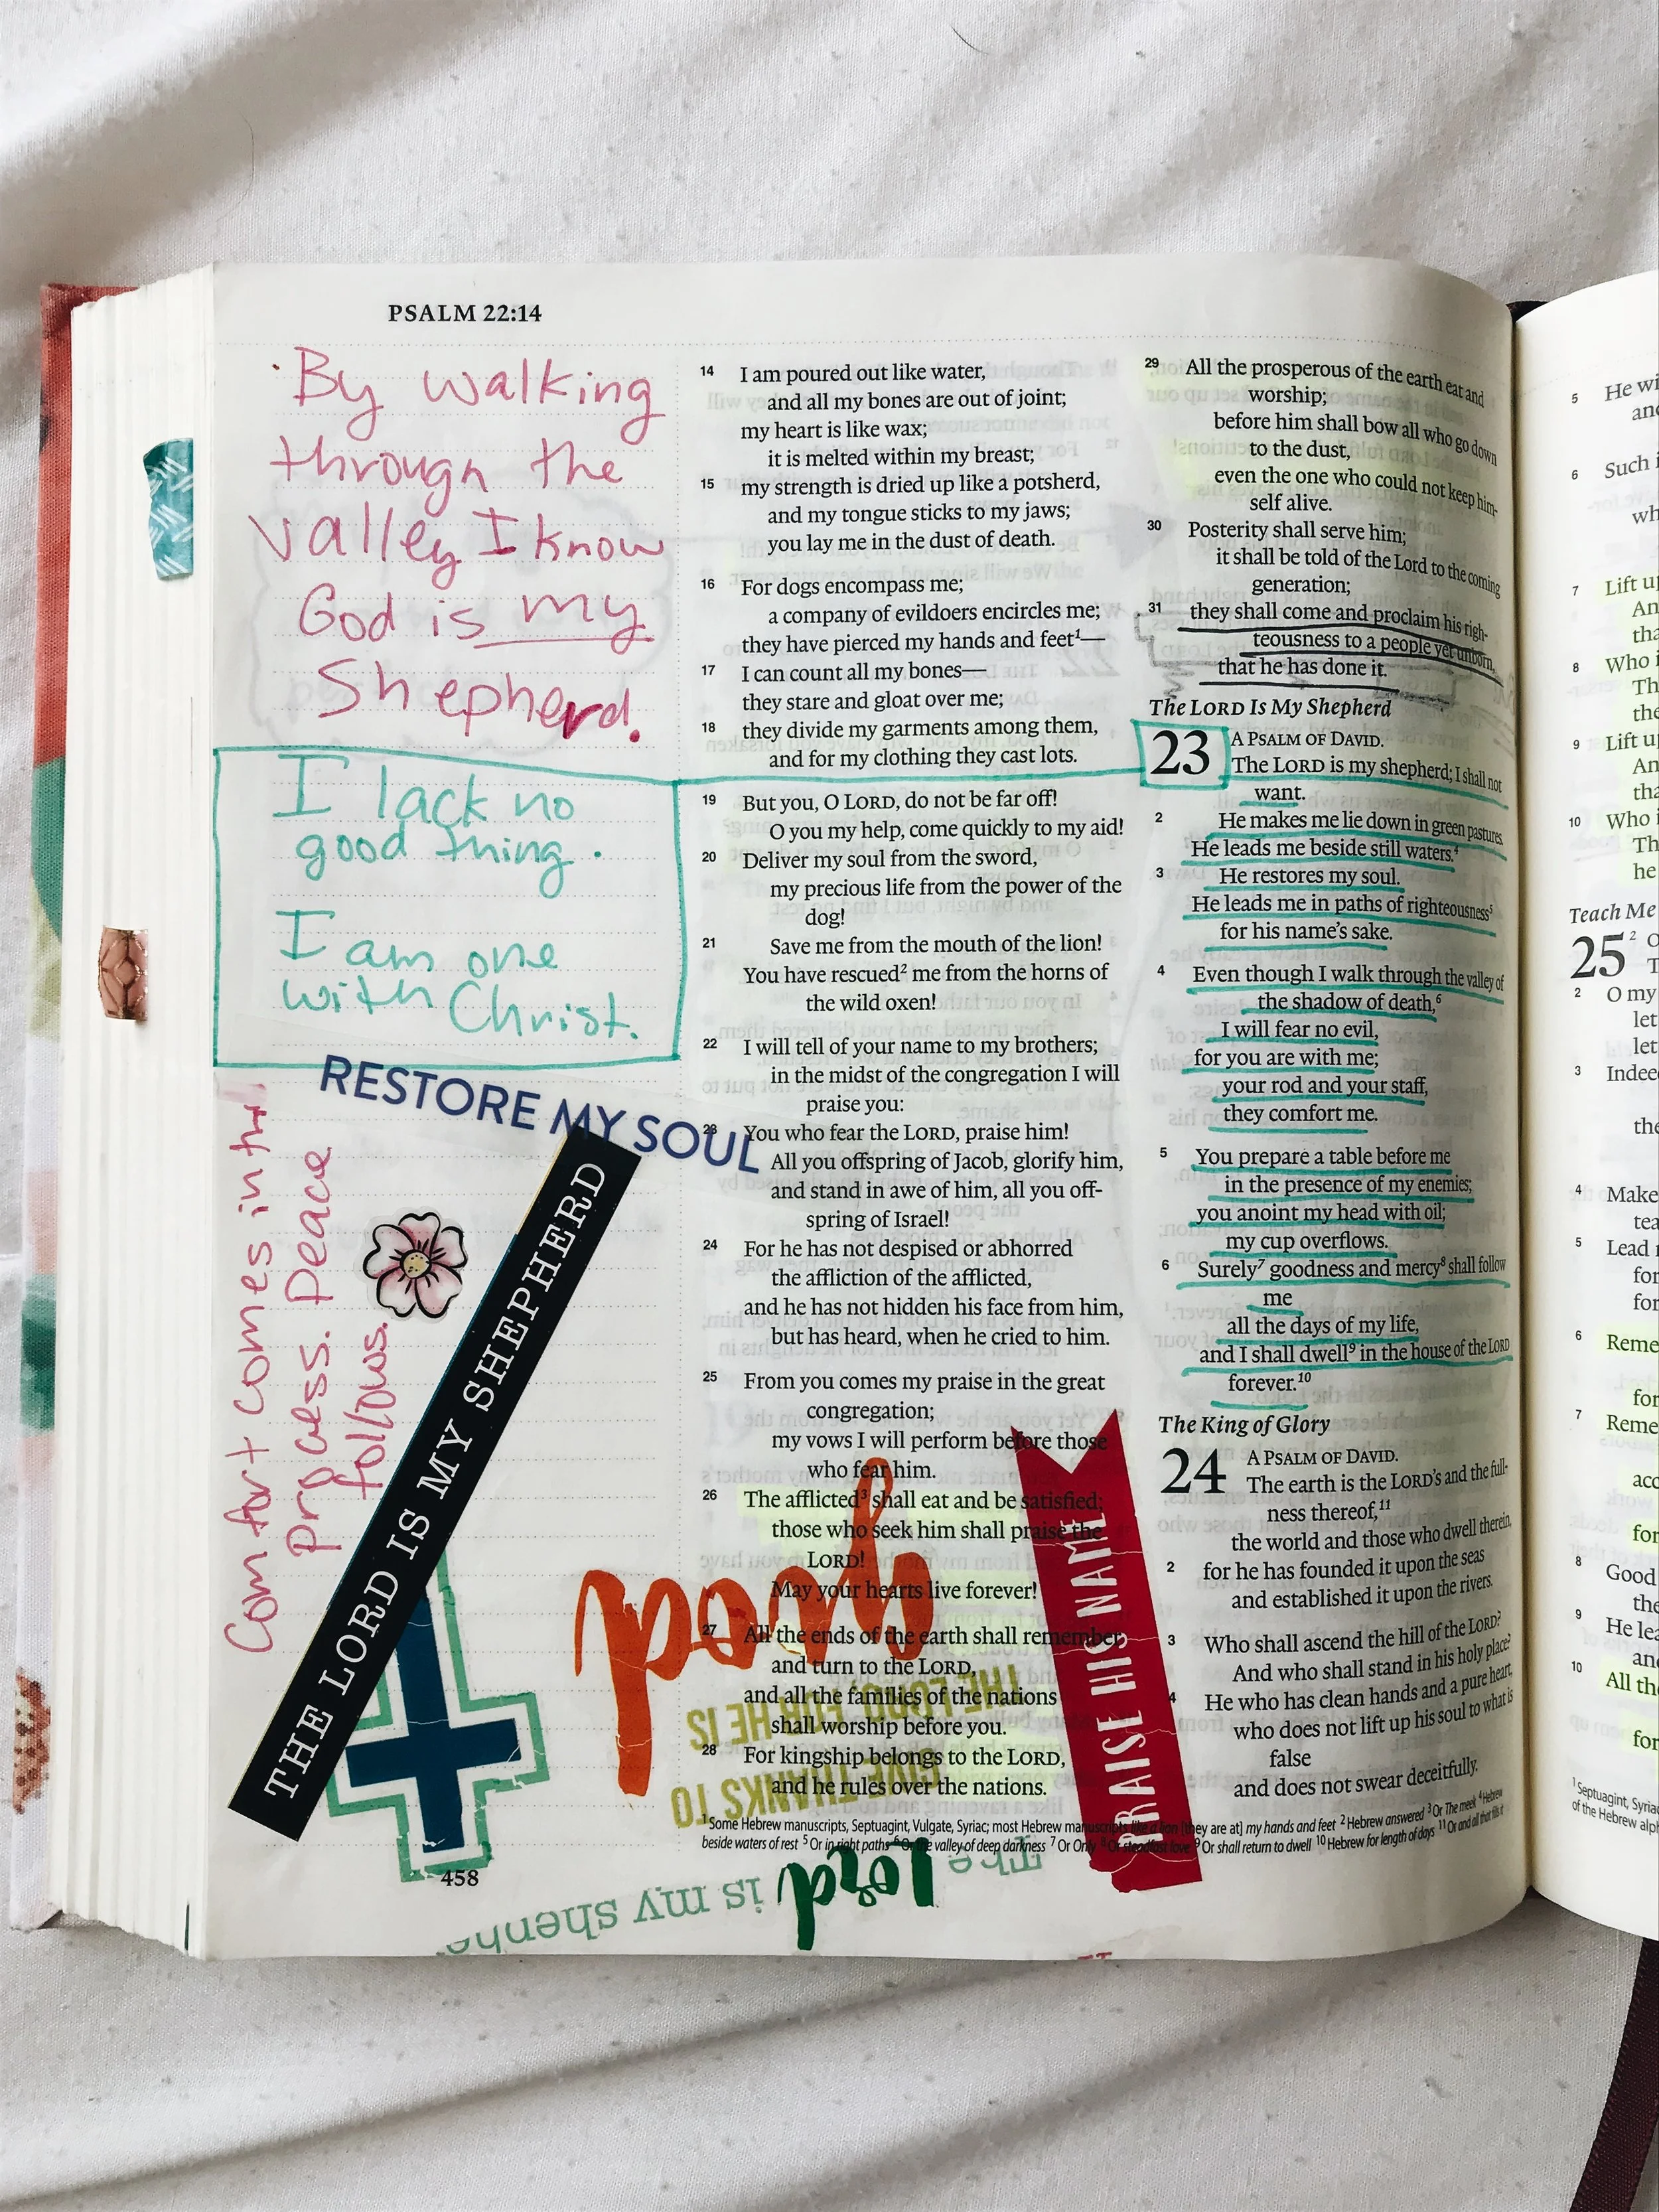 PSALM 22:14
By walking
through the
valley I know
God is my
Shepherd.
I lack no
good thing.
I am one
with Christ.
RESTORE MY SOUL
Comfort comes in the
process. Peace
follows.
THE LORD IS MY SHEPHERD
14 I am poured out like water,
and all my bones are out of joint;
my heart is like wax;
it is melted within my breast;
15 my strength is dried up like a potsherd,
and my tongue sticks to my jaws;
you lay me in the dust of death.
16 For dogs encompass me;
a company of evildoers encircles me;
they have pierced my hands and feet¹—
17 I can count all my bones—
they stare and gloat over me;
18 they divide my garments among them,
and for my clothing they cast lots.
19 But you, O LORD, do not be far off!
O you my help, come quickly to my aid!
20 Deliver my soul from the sword,
my precious life from the power of the
dog!
21 Save me from the mouth of the lion!
You have rescued² me from the horns of
the wild oxen!
22 I will tell of your name to my brothers;
in the midst of the congregation I will
praise you:
23 You who fear the LORD, praise him!
All you offspring of Jacob, glorify him,
and stand in awe of him, all you off-
spring of Israel!
24 For he has not despised or abhorred
the affliction of the afflicted,
and he has not hidden his face from him,
but has heard, when he cried to him.
25 From you comes my praise in the great
congregation;
my vows I will perform before those
who fear him.
26 The afflicted³ shall eat and be satisfied;
those who seek him shall praise the
LORD!
May your hearts live forever!
27 All the ends of the earth shall remember
and turn to the LORD,
and all the families of the nations
shall worship before you.
28 For kingship belongs to the LORD,
and he rules over the nations.
GIVE THANKS TO
THE LORD, FOR HE IS
good
PRAISE HIS NAME
29 All the prosperous of the earth eat and
worship;
before him shall bow all who go down
to the dust,
even the one who could not keep him-
self alive.
30 Posterity shall serve him;
it shall be told of the Lord to the coming
generation;
31 they shall come and proclaim his righ-
teousness to a people yet unborn,
that he has done it.
The LORD Is My Shepherd
23 A PSALM OF DAVID.
The LORD is my shepherd; I shall not
want.
2 He makes me lie down in green pastures.
He leads me beside still waters.⁴
3 He restores my soul.
He leads me in paths of righteousness⁵
for his name's sake.
4 Even though I walk through the valley of
the shadow of death,⁶
I will fear no evil,
for you are with me;
your rod and your staff,
they comfort me.
5 You prepare a table before me
in the presence of my enemies;
you anoint my head with oil;
my cup overflows.
6 Surely⁷ goodness and mercy⁸ shall follow
me
all the days of my life,
and I shall dwell⁹ in the house of the LORD
forever.¹⁰
The King of Glory
24 A PSALM OF DAVID.
The earth is the LORD's and the full-
ness thereof,¹¹
the world and those who dwell therein,
2 for he has founded it upon the seas
and established it upon the rivers.
3 Who shall ascend the hill of the LORD?
And who shall stand in his holy place?
4 He who has clean hands and a pure heart,
who does not lift up his soul to what is
false
and does not swear deceitfully.
¹Some Hebrew manuscripts, Septuagint, Vulgate, Syriac; most Hebrew manuscripts like a lion [they are at] my hands and feet ²Hebrew answered ³Or The meek ⁴Hebrew
beside waters of rest ⁵Or in right paths ⁶Or the valley of deep darkness ⁷Or Only ⁸Or steadfast love ⁹Or shall return to dwell ¹⁰Hebrew for length of days ¹¹Or and all that fills it
458
The lord is my
5 He wi
6 Such i
wh
7 Lift up
An
tha
8 Who i
Th
the
9 Lift up
An
tha
10 Who i
Th
he
Teach Me
25 ² O
2 O my
let
let
3 Indee
the
4 Make
tea
5 Lead
for
for
6 Reme
for
7 Reme
acc
for
8 Good
the
9 He lea
and
10 All the
for
¹Septuagint, Syriac
of the Hebrew alph